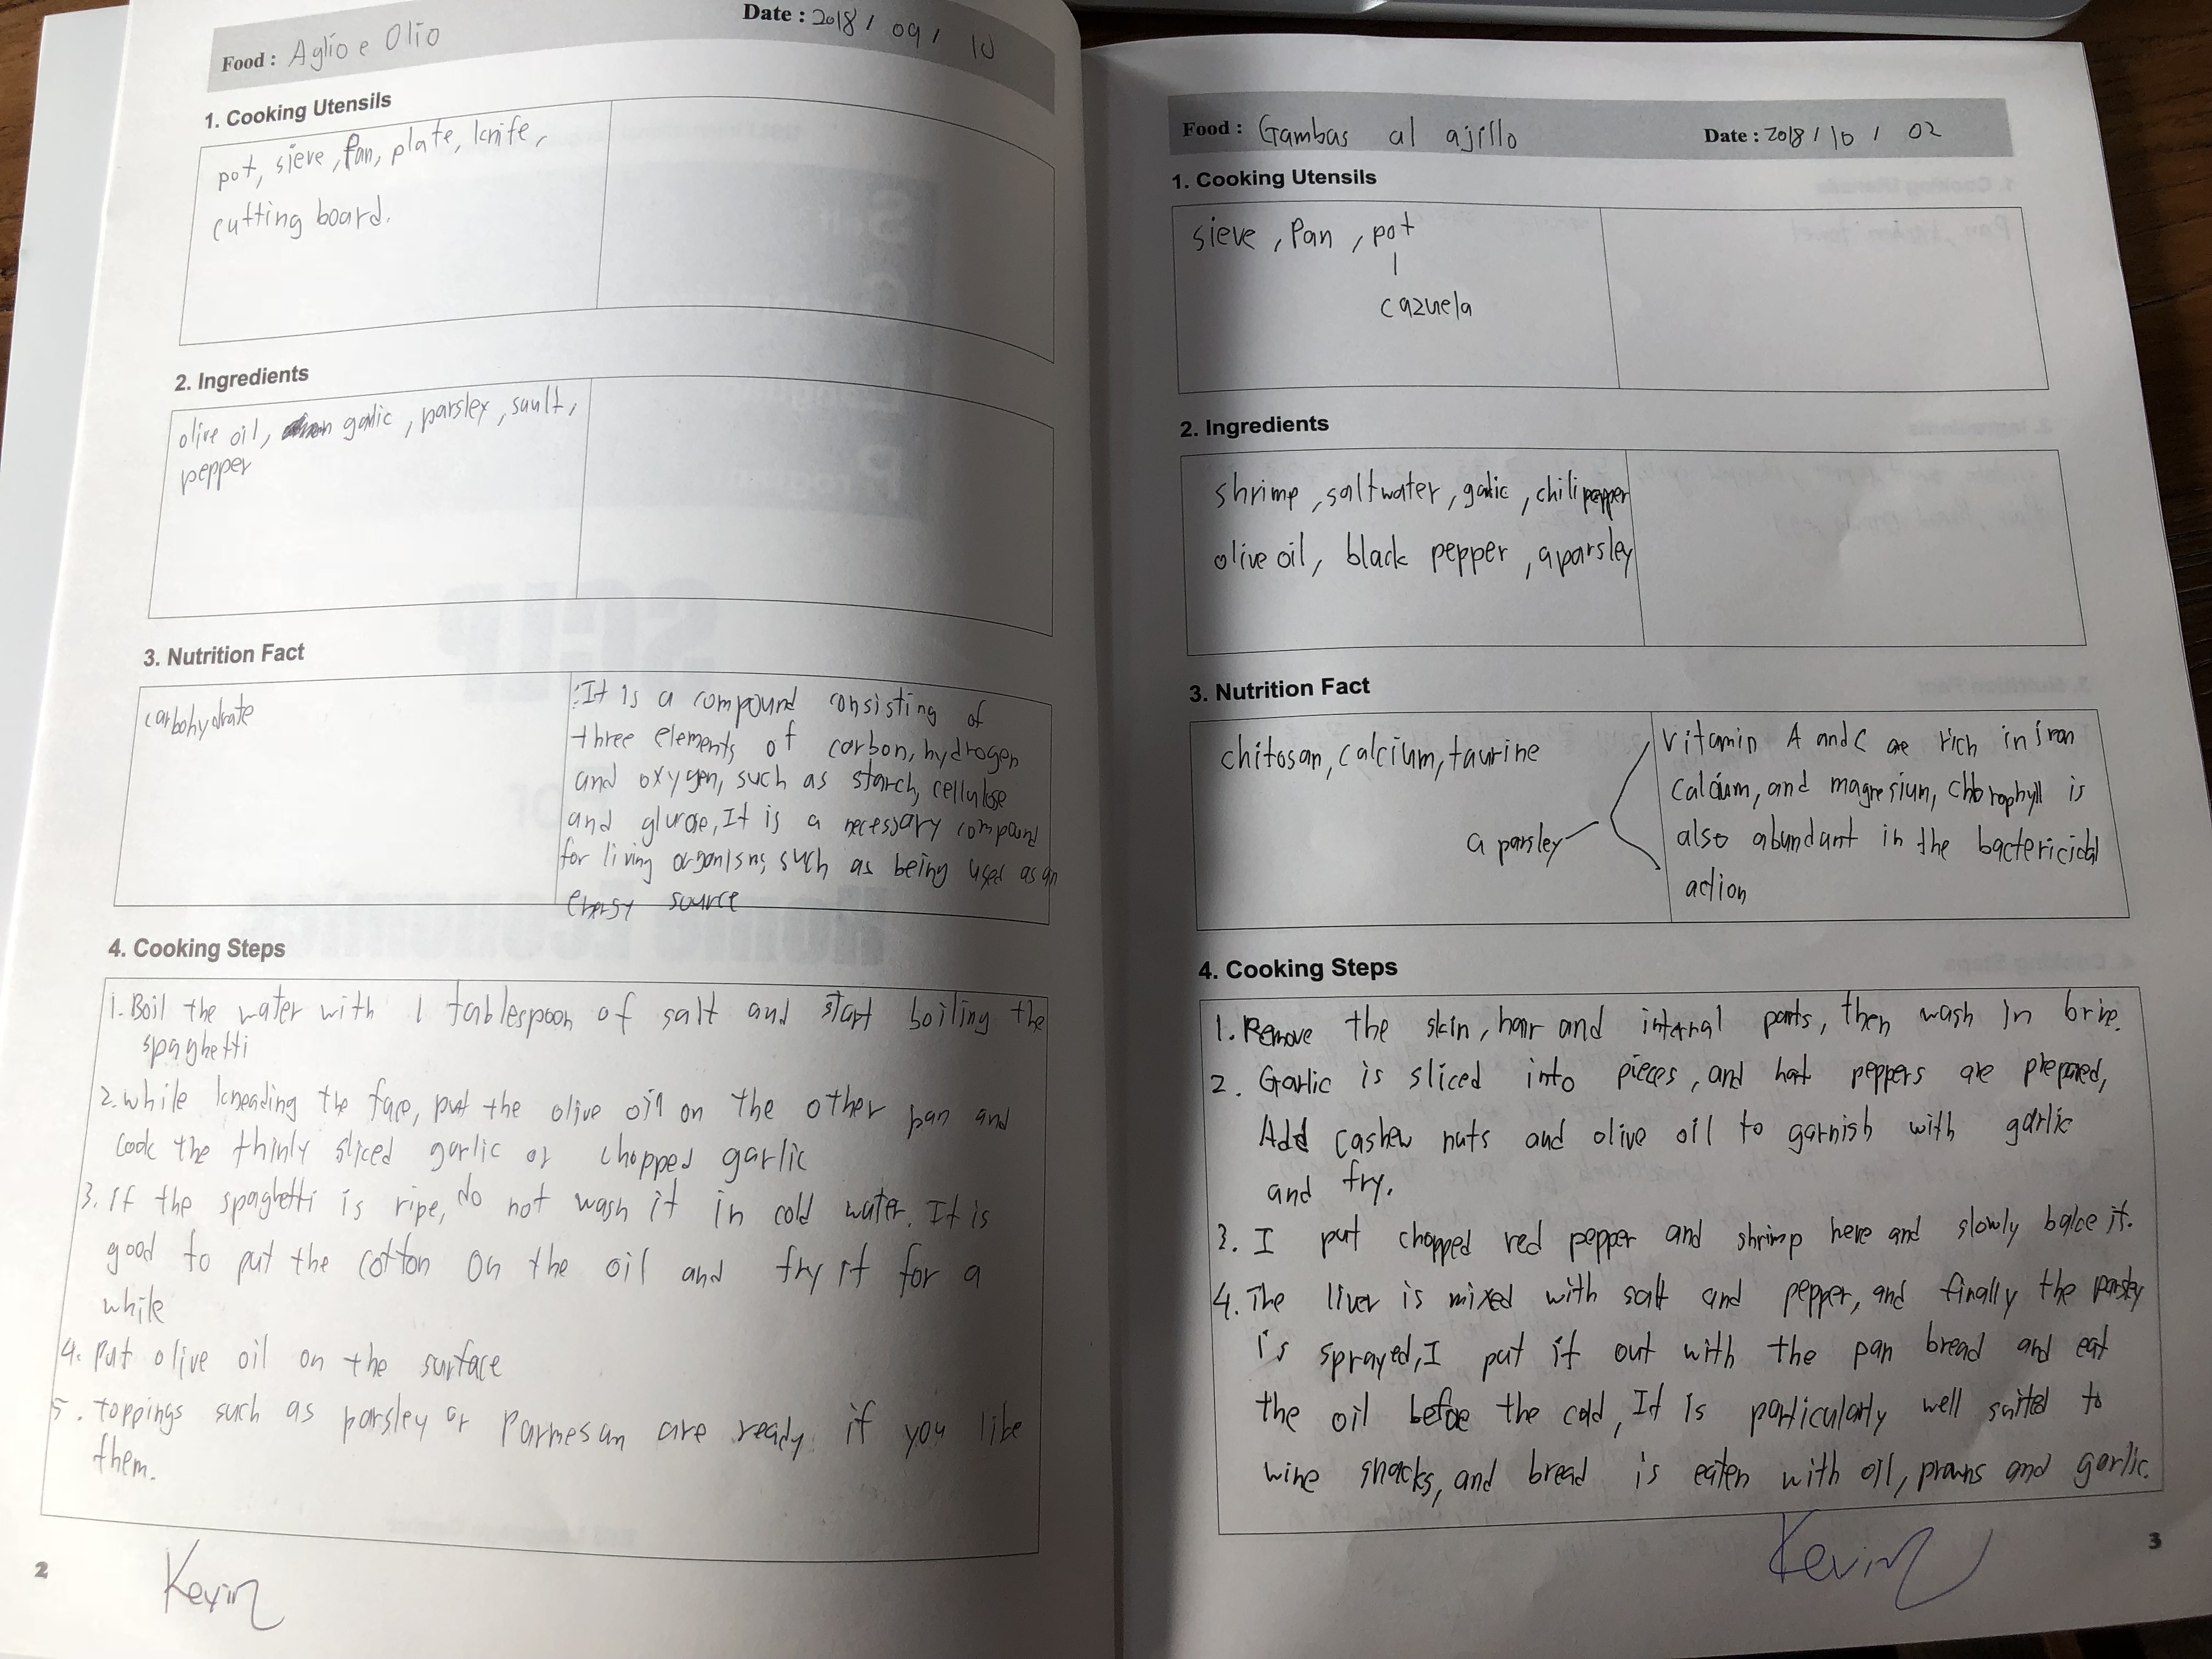 Food : Aglio e Olio
Date : 2018 / 09 / 10
1. Cooking Utensils
pot, sieve, fan, plate, knife,
cutting board.
2. Ingredients
olive oil, galic, parsley, sault,
pepper
3. Nutrition Fact
carbohydrate
: It is a compound consisting of
three elements of carbon, hydrogen
and oxygen, such as starch, cellulose
and glurose, It is a necessary compound
for living organisms, such as being used as an
energy source
4. Cooking Steps
1. Boil the water with 1 tablespoon of salt and start boiling the
spaghetti
2. while kneading the face, put the olive oil on the other pan and
cook the thinly sliced garlic or chopped garlic
3. if the spaghetti is ripe, do not wash it in cold water. It is
good to put the cotton on the oil and fry it for a
while
4. Put olive oil on the surface
5. toppings such as parsley or Parmesan are ready if you like
them.
2
Kevin
Food : Gambas al ajillo
Date : 2018 / 10 / 02
1. Cooking Utensils
sieve, Pan, pot
cazuela
2. Ingredients
shrimp, saltwater, galic, chili pepper
olive oil, black pepper, aparsley
3. Nutrition Fact
chitosan, calcium, taurine
a parsley
Vitamin A and C are rich in iron
calcium, and magnesium, chlorophyll is
also abundant in the bactericidal
action
4. Cooking Steps
1. Remove the skin, hair and internal parts, then wash in brine.
2. Garlic is sliced into pieces, and hot peppers are prepared,
Add cashew nuts and olive oil to garnish with garlic
and fry.
3. I put chopped red pepper and shrimp here and slowly bake it.
4. The liver is mixed with salt and pepper, and finally the parsley
is sprayed, I put it out with the pan bread and eat
the oil before the cold, It is particularly well suited to
wine snacks, and bread is eaten with oil, prawns and garlic.
Kevin
3